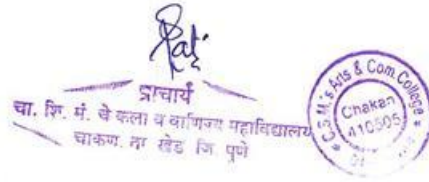 प्राचार्य
चा. शि. मं. चे कला व वाणिज्य महाविद्यालय
चाकण. ता खेड जि. पुणे
C.S.M.'s Arts & Com. College
Chakan
410505